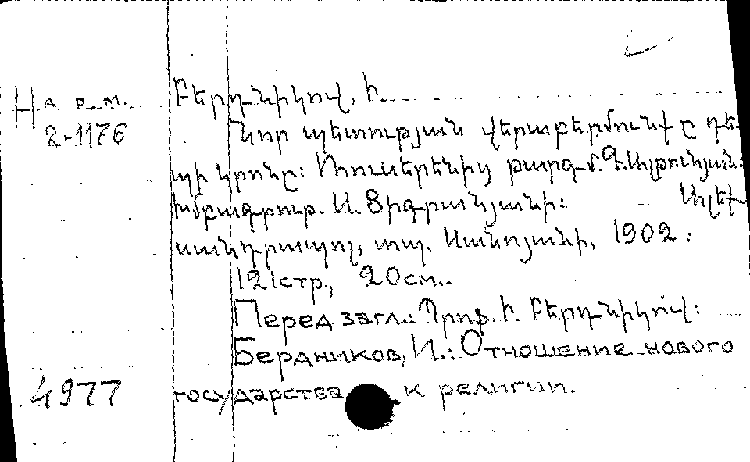 На р.м. Բերդնիկով, Ի.
2-1176 Նոր պետության վերաբերմունքը դե-
պի կրոնը: Ռուսերենից թարգմ. Գ. Ալթունյան:
Խմբագրութ. Ա. Տիգրանյանի: Ալեք-
սանդրապոլ, տպ. Սանոյանի, 1902:
121стр., 20см.
Перед загл.: Պրոֆ. Ի. Բերդնիկով:
Бердников, И.: Отношение нового
4977 государства к религии.